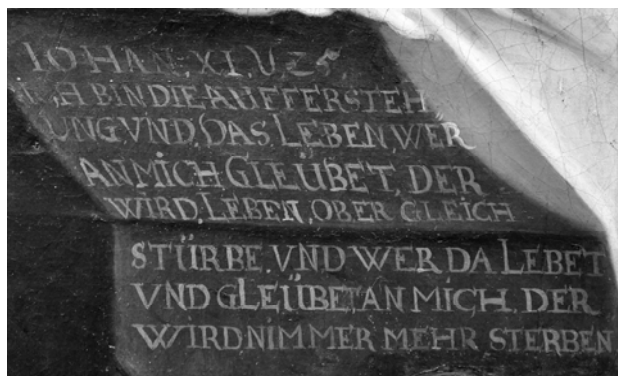 IOHAN; XI, V, 25,
ICH BIN DIE AUFFERSTEH
UNG VND, DAS LEBEN, WER
AN MICH GLEÜBET, DER
WIRD, LEBEN, OB ER GLEICH
STÜRBE. VND WER DA LEBET
VND GLEÜBET AN MICH. DER
WIRD NIMMER MEHR STERBEN